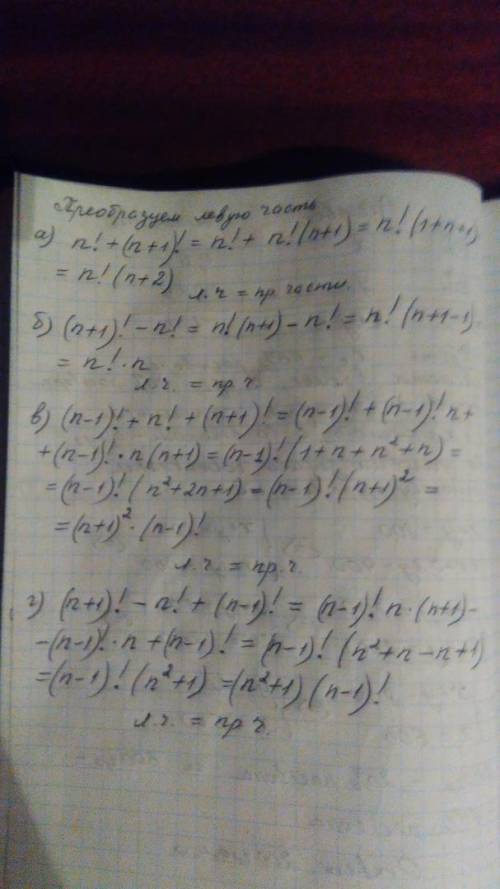 Преобразуем левую часть
а) n! + (n+1)! = n! + n!(n+1) = n!(1+n+1)
= n!(n+2)
л.ч = пр. части.
б) (n+1)! - n! = n!(n+1) - n! = n!(n+1-1)
= n!·n
л.ч. = пр.ч.
в) (n-1)! + n! + (n+1)! = (n-1)! + (n-1)! n +
+ (n-1)!·n(n+1) = (n-1)!(1+n+n²+n) =
= (n-1)!(n²+2n+1) = (n-1)!(n+1)² =
= (n+1)²·(n-1)!
л.ч. = пр.ч.
г) (n+1)! - n! + (n-1)! = (n-1)! n·(n+1) -
- (n-1)!·n + (n-1)! = (n-1)! (n²+n-n+1)
= (n-1)! (n²+1) = (n²+1)(n-1)!
л.ч. = пр ч.